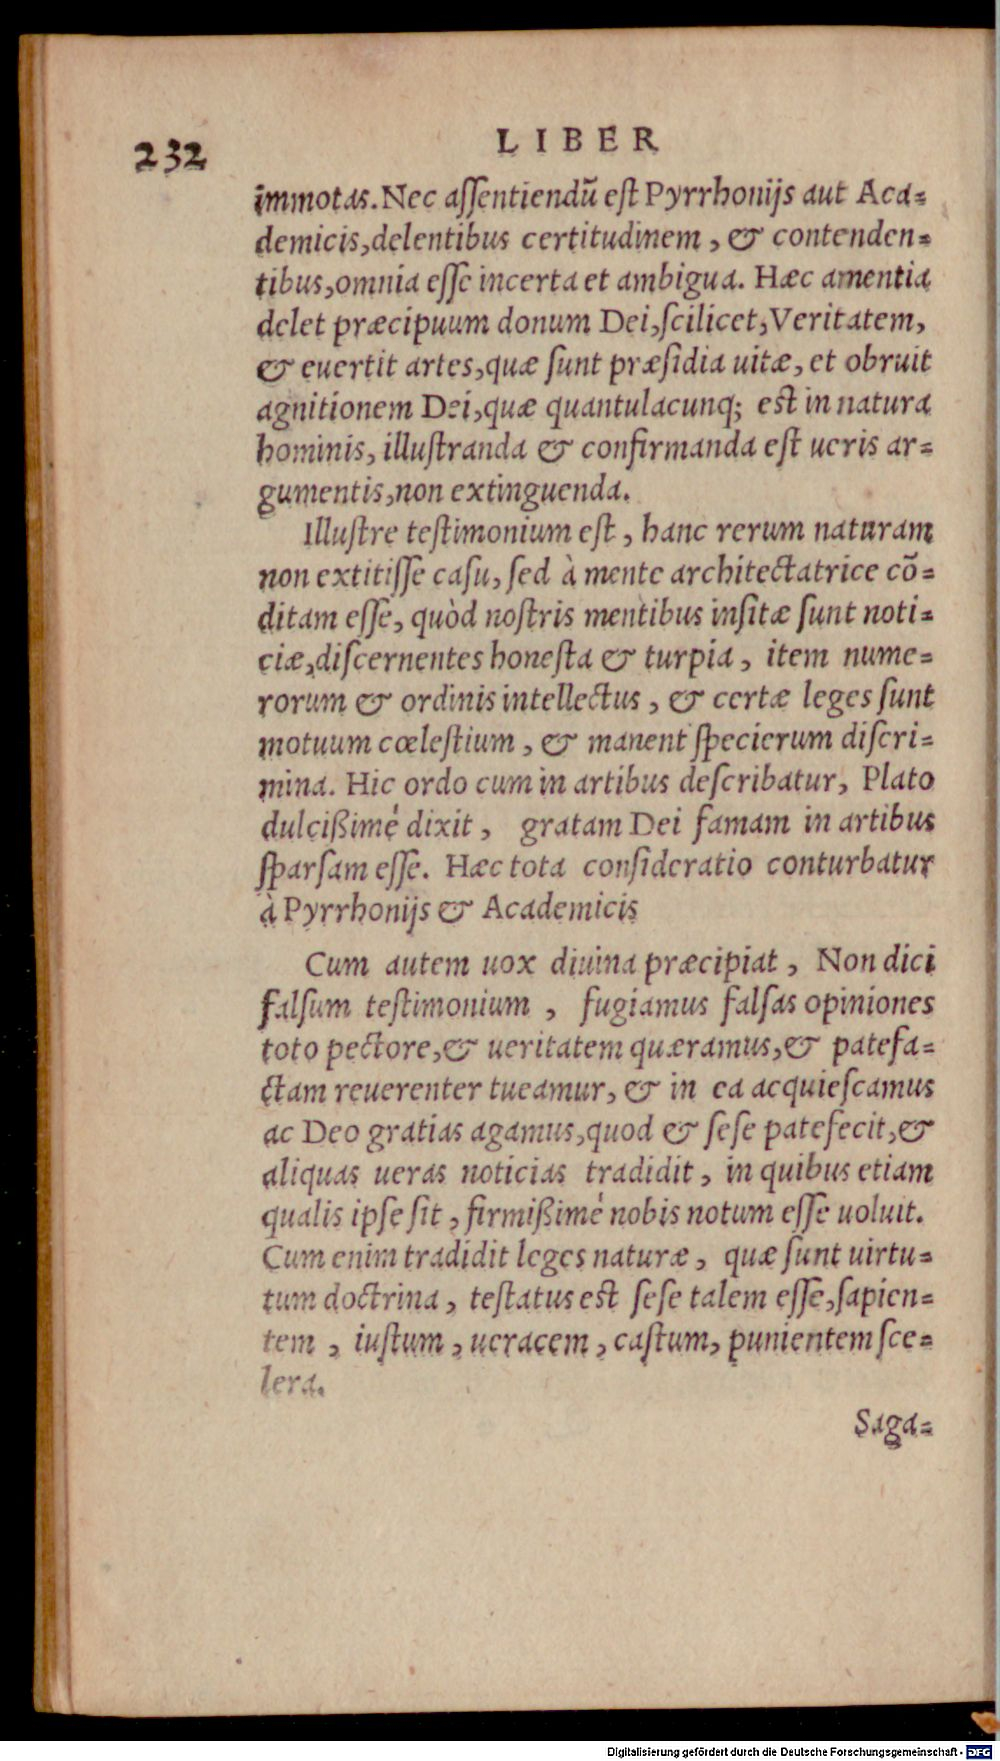 232
LIBER
immotas. Nec aſſentiendũ eſt Pyrrhonijs aut Aca=
demicis, delentibus certitudinem, & contenden=
tibus, omnia eſſe incerta et ambigua. Hæc amentia
delet præcipuum donum Dei, ſcilicet, Veritatem,
& euertit artes, quæ ſunt præſidia uitæ, et obruit
agnitionem Dei, quæ quantulacunq; est in natura
hominis, illuſtranda & confirmanda eſt ueris ar=
gumentis, non extinguenda.
Illuſtre teſtimonium eſt, hanc rerum naturam
non extitiſſe caſu, ſed à mente architectatrice cō=
ditam eſſe, quòd noſtris mentibus inſitæ ſunt noti=
ciæ, diſcernentes honeſta & turpia, item nume=
rorum & ordinis intellectus, & certæ leges ſunt
motuum cœleſtium, & manent ſpecierum diſcri=
mina. Hic ordo cum in artibus deſcribatur, Plato
dulcißimé dixit, gratam Dei famam in artibus
ſparſam eſſe. Hæc tota conſideratio conturbatur
à Pyrrhonijs & Academicis
Cum autem uox diuina præcipiat, Non dici
falſum teſtimonium, fugiamus falſas opiniones
toto pectore, & ueritatem quæramus, & patefa=
ctam reuerenter tueamur, & in ea acquieſcamus
ac Deo gratias agamus, quod & ſeſe patefecit, &
aliquas ueras noticias tradidit, in quibus etiam
qualis ipſe ſit, firmißimé nobis notum eſſe uoluit.
Cum enim tradidit leges naturæ, quæ ſunt uirtu=
tum doctrina, teſtatus est ſeſe talem eſſe, ſapien=
tem, iuſtum, ueracem, caſtum, punientem ſce=
lera.
Saga=
Digitalisierung gefördert durch die Deutsche Forschungsgemeinschaft - DFG